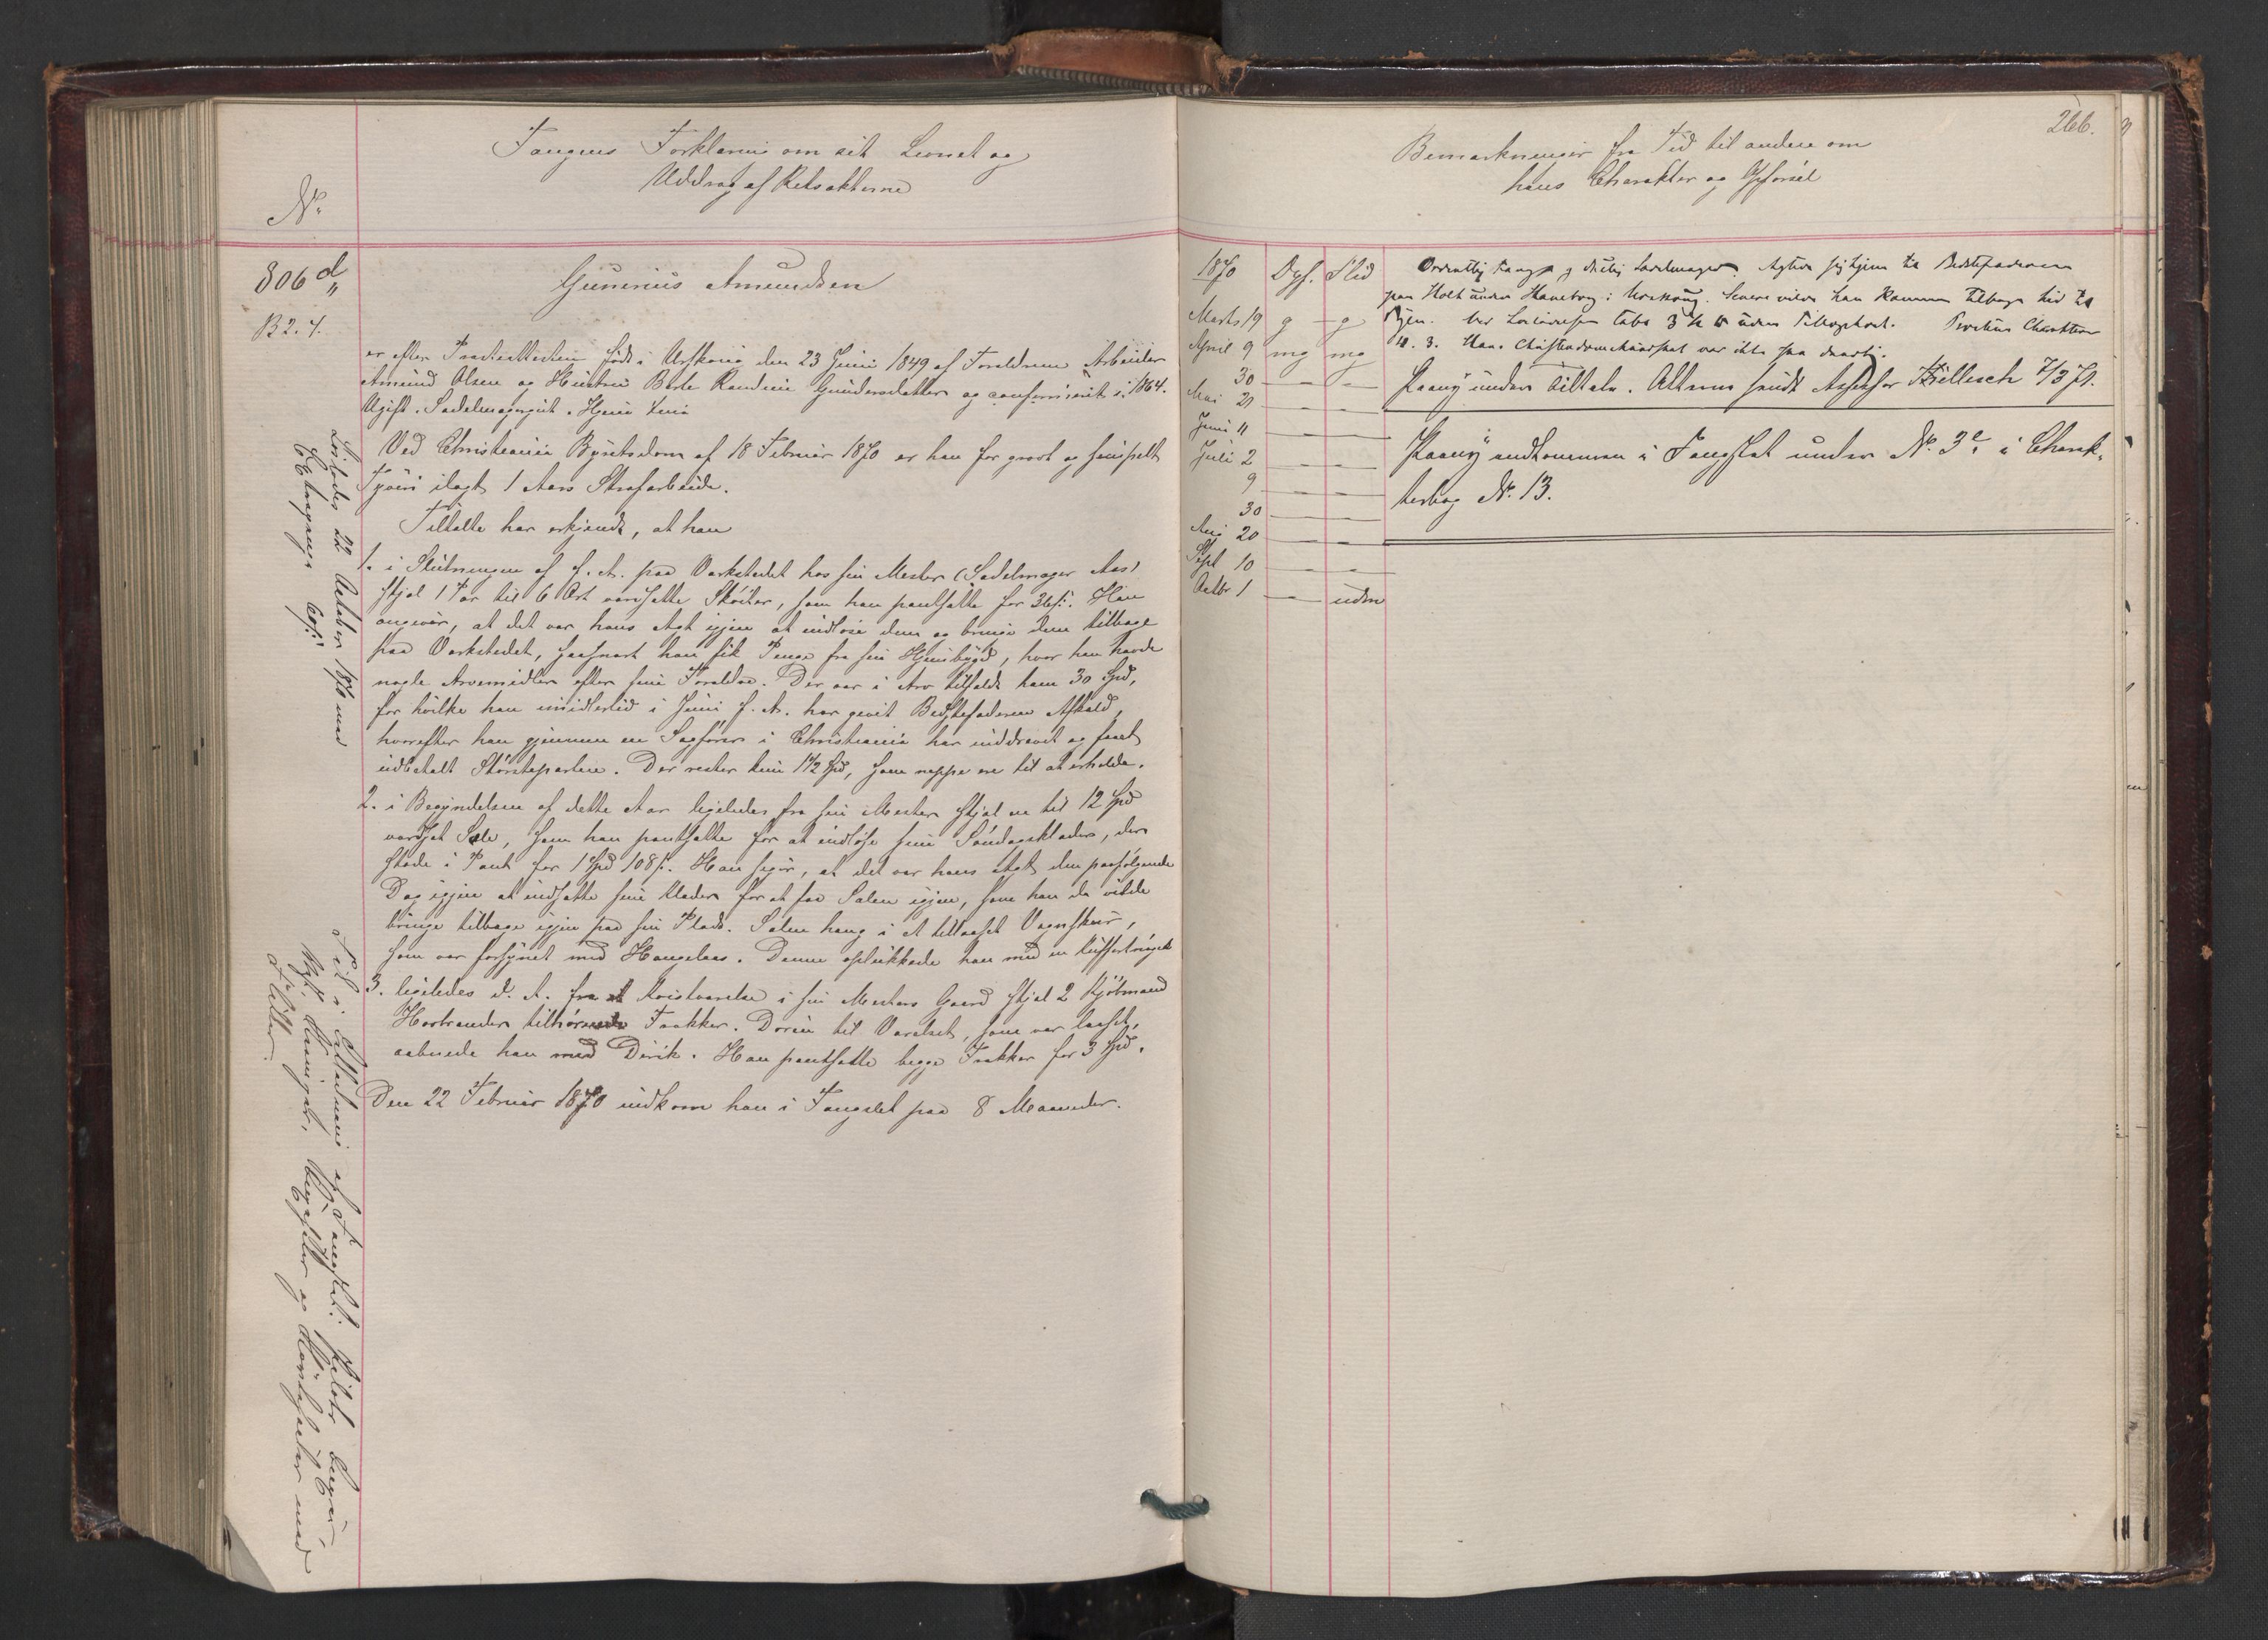 Fangens Forklaring om sit Levnet og
Uddrag af Retsakterne
No
306 d
B2. 4.
Gunerius Amundsen
er efter Practiattesten født i Urskoug den 23 Juni 1849 af Forældrene Arbeider
Amund Olsen og Hustru Berte Randine Gundersdatter og confirmeret i 1864.
Ugift. Sadelmagergut. Hjem
Ved Christiania Byretsdom af 18 Februar 1870 er han for grovt og simpelt
Tyveri ilagt 1 Aars Strafarbeide.
Tiltalte har erkjendt, at han
1. i Slutningen af f. A. paa Værkstedet hos sin Mester (Sadelmager Aas)
stjal 1 Par til 6 Ort værdsatte Skøiter, som han pantsatte for 36 s. Han
angiver, at det var hans Agt igjen at indløse dem og bringe dem tilbage
paa Værkstedet, saasnart han fik Penge fra sin Hjembygd, hvor han havde
nogle Arvemidler efter sine Forældre. Der var i Arv tilfaldt ham 30 Spd,
for hvilke han imidlertid i Juni f. A. har givet Bedstefaderen Afkald,
hvorefter han gjennem en Sagfører i Christiania har inddrevet og faaet
udbetalt Størsteparten. Der rester kun 1½ Spd, som neppe er til at erholde.
2. i Begyndelsen af dette Aar ligeledes fra sin Mester stjal en til 12 Spd
værdsat Sele, som han pantsatte for at indløse sine Søndagsklæder, der
stode i Pant for 1 Spd 108 s. Han siger, at det var hans Agt den paafølgende
Dag igjen at indsætte sine Klæder for at faa Selen igjen, som han da vilde
bringe tilbage igjen paa sin Plads. Selen hang i et tillaaset Vognskur,
som var forsynet med Hængelaas. Denne oplukkede han med en
3. ligeledes d. A. fra et Kvistværelse i sin Mesters Gaard stjal 2 Kjøbmand
tilhørende Frakker. Døren til Værelset, som var laaset,
aabnede han med Dirik. Han pantsatte begge Frakker for 3 Spd.
Den 22 Februar 1870 indkom han i Fangslet paa 8 Maaneder.
Løslodes 22 October 1870 med
Til i
af Fangslet
og
266.
Bemærkninger fra Tid til anden om
hans Charakter og Opførsel
1870 Opf. Flid
Marts 19 g g
April 9 mg mg
30 — —
Mai 21 — —
Juni 11 — —
Juli 2 — —
9 — —
30 — —
Aug 20 — —
Sept 10 — —
Octbr 1 — uden
Ordentlig Fange og duelig Sadelmager. Agtede sig hjem til Bedstefaderen
paa Holt under Haneborg i Urskoug. Senere vilde han komme tilbage hid til
Byen. Ved Løsladelsen tabt 3 ½ uden Tillægskost.
4. 3. Hans Christendomskundskab var ikke saa daarlig.
Paany under Tiltale. Attesten sendt Assessor 7/3 71.
Paany indkommen i Fangslet under No. 3 e i Charak-
terbog No. 13.